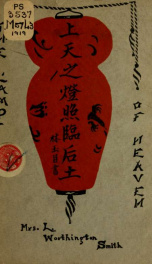 PS
3537
1919
上天之燈照臨后土
LAMP
OF HEAVEN
Mrs. L.
Worthington
Smith